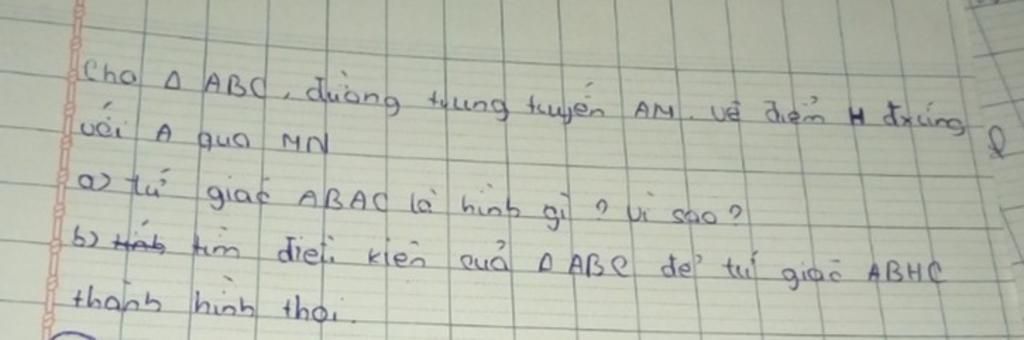 Cho Δ ABC, đường trung tuyến AM. vẽ điểm H đxứng
với A qua MN
a) tứ giác ABAC là hình gì ? Vì sao?
b) tìm điều kiện của Δ ABC để tứ giác ABHC
thành hình thoi.